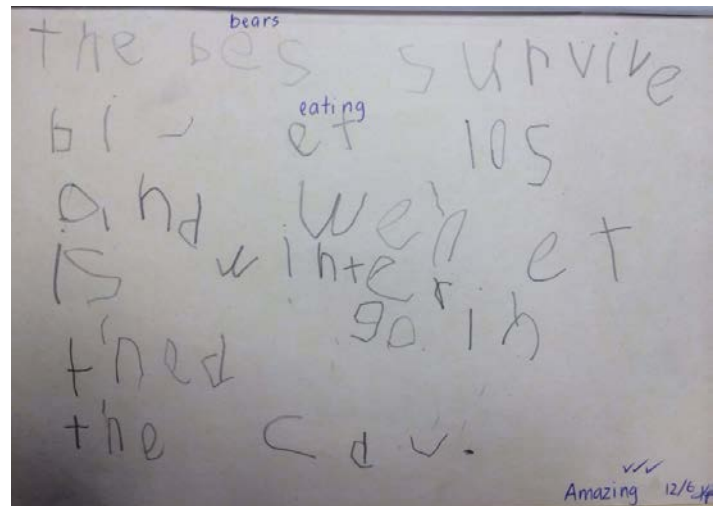 bears
the bes survive
eating
bi et los
and wen et
is winter
thed go in
the cav.
Amazing 12/6